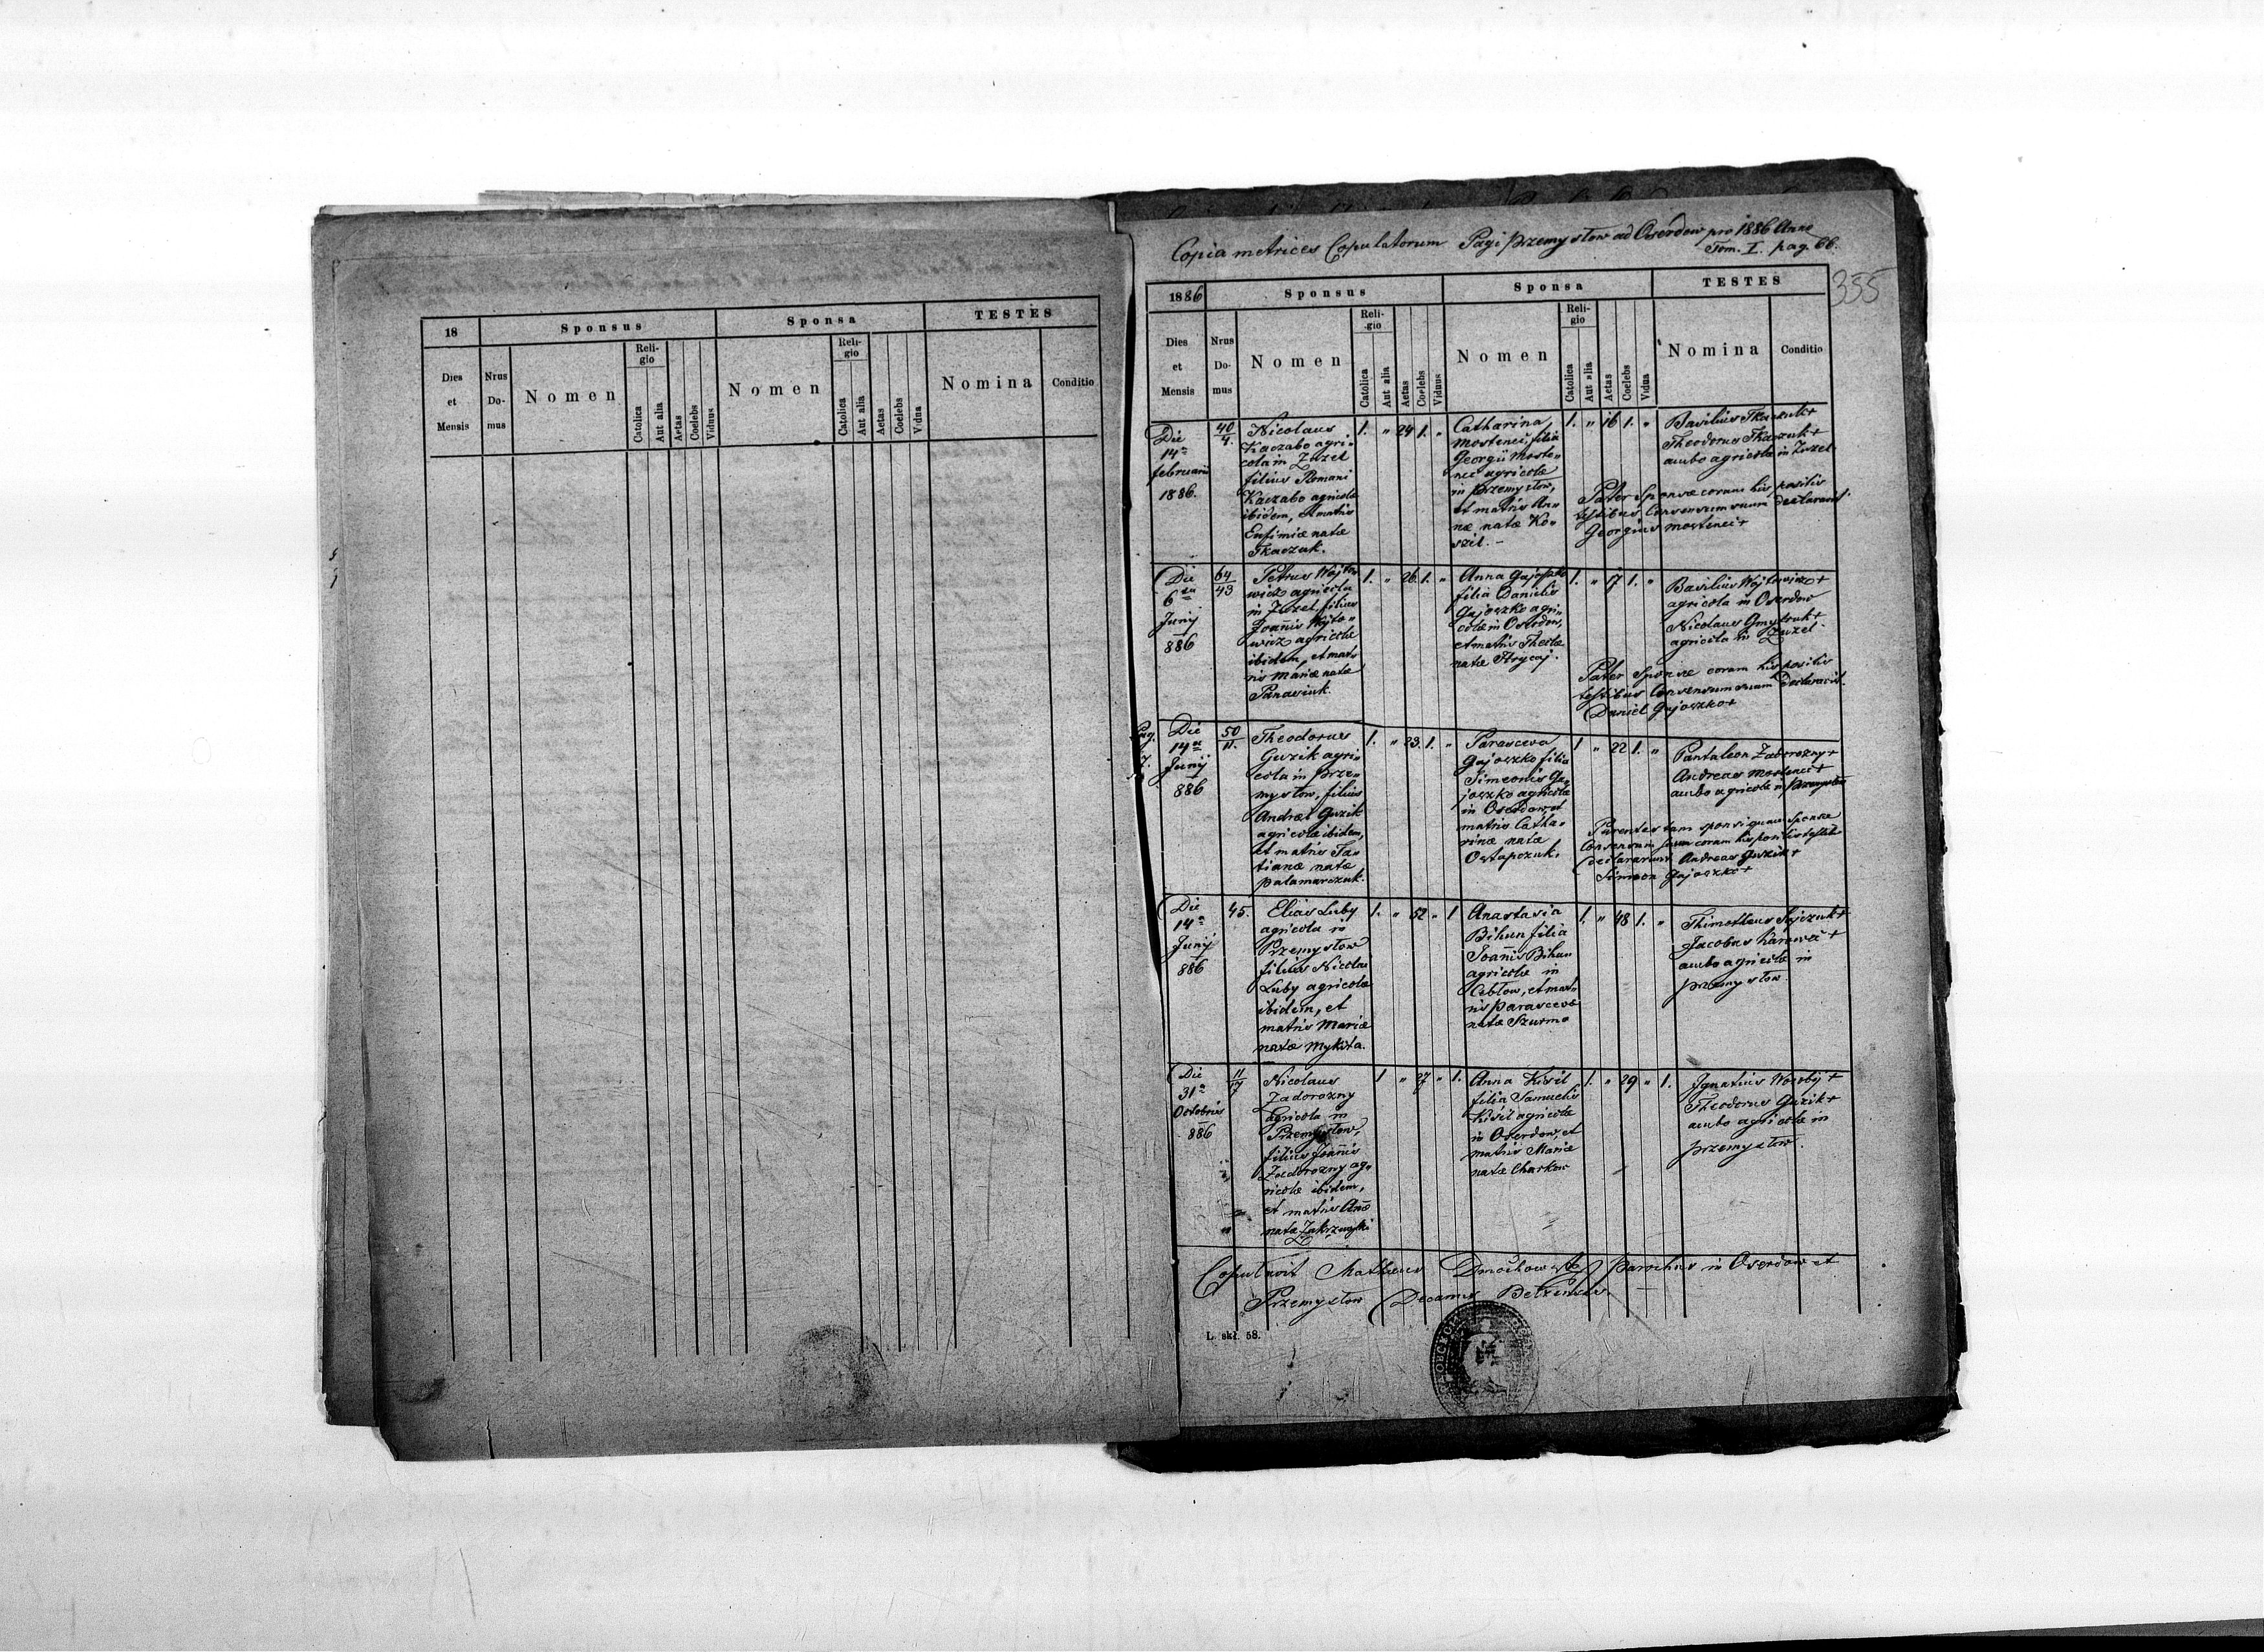 18
Sponsus
Sponsa
TESTES
Dies
et
Mensis
Nrus
Do-
mus
Nomen
Reli-
gio
Catolica
Aut alia
Aetas
Coelebs
Viduus
Nomen
Reli-
gio
Catolica
Aut alia
Aetas
Coelebs
Vidua
Nomina
Conditio
Copia metrices Copulatorum Pagi Przemysłow ad Oserdow pro 1886 Anno
Tom. I. pag. 66.
355
1886
Sponsus
Sponsa
TESTES
Dies
et
Mensis
Nrus
Do-
mus
Nomen
Reli-
gio
Catolica
Aut alia
Aetas
Coelebs
Viduus
Nomen
Reli-
gio
Catolica
Aut alia
Aetas
Coelebs
Vidua
Nomina
Conditio
Die
14a
februarii
1886.
40
4.
Nicolaus
Kaczabo agri-
cola in Zuzel
filius Romani
Kaczabo agricolæ
ibidem, et matris
Eufimiæ natæ
Tkaczuk.
1. " 24 1. "
Catharina
Mostenci, filia
Georgii Moste-
nci agricolæ
in Przemysłow,
et matris An-
næ natæ Ko-
szil. -
1. " 16 1. "
Basilius Tkaczuk+
Theodorus Tkaczuk+
ambo agricolæ in Zuzel
Pater Sponsæ coram his positis
testibus Consensum suum declaravit.
Georgius Mostenci+
Die
6ta
Junij
886
64
43
Petrus Wojto
wicz agricola
in Zuzel, filius
Joannis Wojto-
wicz agricolæ
ibidem, et mat-
ris Mariæ natæ
Panasiuk.
1. " 26. 1. "
Anna Gajoszko
filia Danielis
Gajoszko agri-
colæ in Oserdow,
et matris Theclæ
natæ Hrycaj.
1. " 17 1. "
Basilius Wojtowicz+
agricola in Oserdow
Nicolaus Gmytruk+
agricola in Zuzel.
Pater Sponsæ coram his positis
testibus Consensum suum Declaravit.
Daniel Gajoszko+
Pag.
Die
14a
Junij
886
50
11.
Theodorus
Guzik agri-
cola in Prze-
mysłow, filius
Andreæ Guzik
agricolæ ibidem,
et matris Ta-
tianæ natæ
Palamarczuk.
1. " 23. 1. "
Parasceva
Gajoszko filia
Simeonis Ga-
joszko agricolæ
in Oserdow, et
matris Catha-
rinæ natæ
Ostapczuk.
1 " 22 1. "
Pantaleon Zadorozny+
Andreas Mostenci+
ambo agricolæ in Przemysłow
Parentes tam sponsi quam Sponsæ
Consensum suum coram his positis testibus
declararunt Andreas Guzik+
Simeon Gajoszko+
Die
14a
Junij
886
45.
Elias Luby
agricola in
Przemysłow
filius Nicolai
Luby agricolæ
ibidem, et
matris Mariæ
natæ Mykita.
1. " 52 " 1
Anastasia
Bihun filia
Joannis Bihun
agricolæ in
Cebłow, et mat-
ris Parascevæ
natæ Szurmo
1. " 48 1. "
Thimotheus
Jacobus
ambo agricolæ in
Przemysłow
Die
31a
Octobris
886
11
17
Nicolaus
Zadorozny
agricola in
Przemysłow,
filius Joannis
Zadorozny ag-
ricolæ ibidem,
et matris Annæ
natæ Zakrzewski
1 " 27 " 1.
Anna Kisil
filia Samuelis
Kisil agricolæ
in Oserdow, et
matris Mariæ
natæ Charkow
1. " 29 " 1.
Ignatius +
Theodorus Guzik+
ambo agricolæ in
Przemysłow.
Copulavit Matheus Parochus in Oserdow et
Przemysłow Decanus
L. skł. 58.